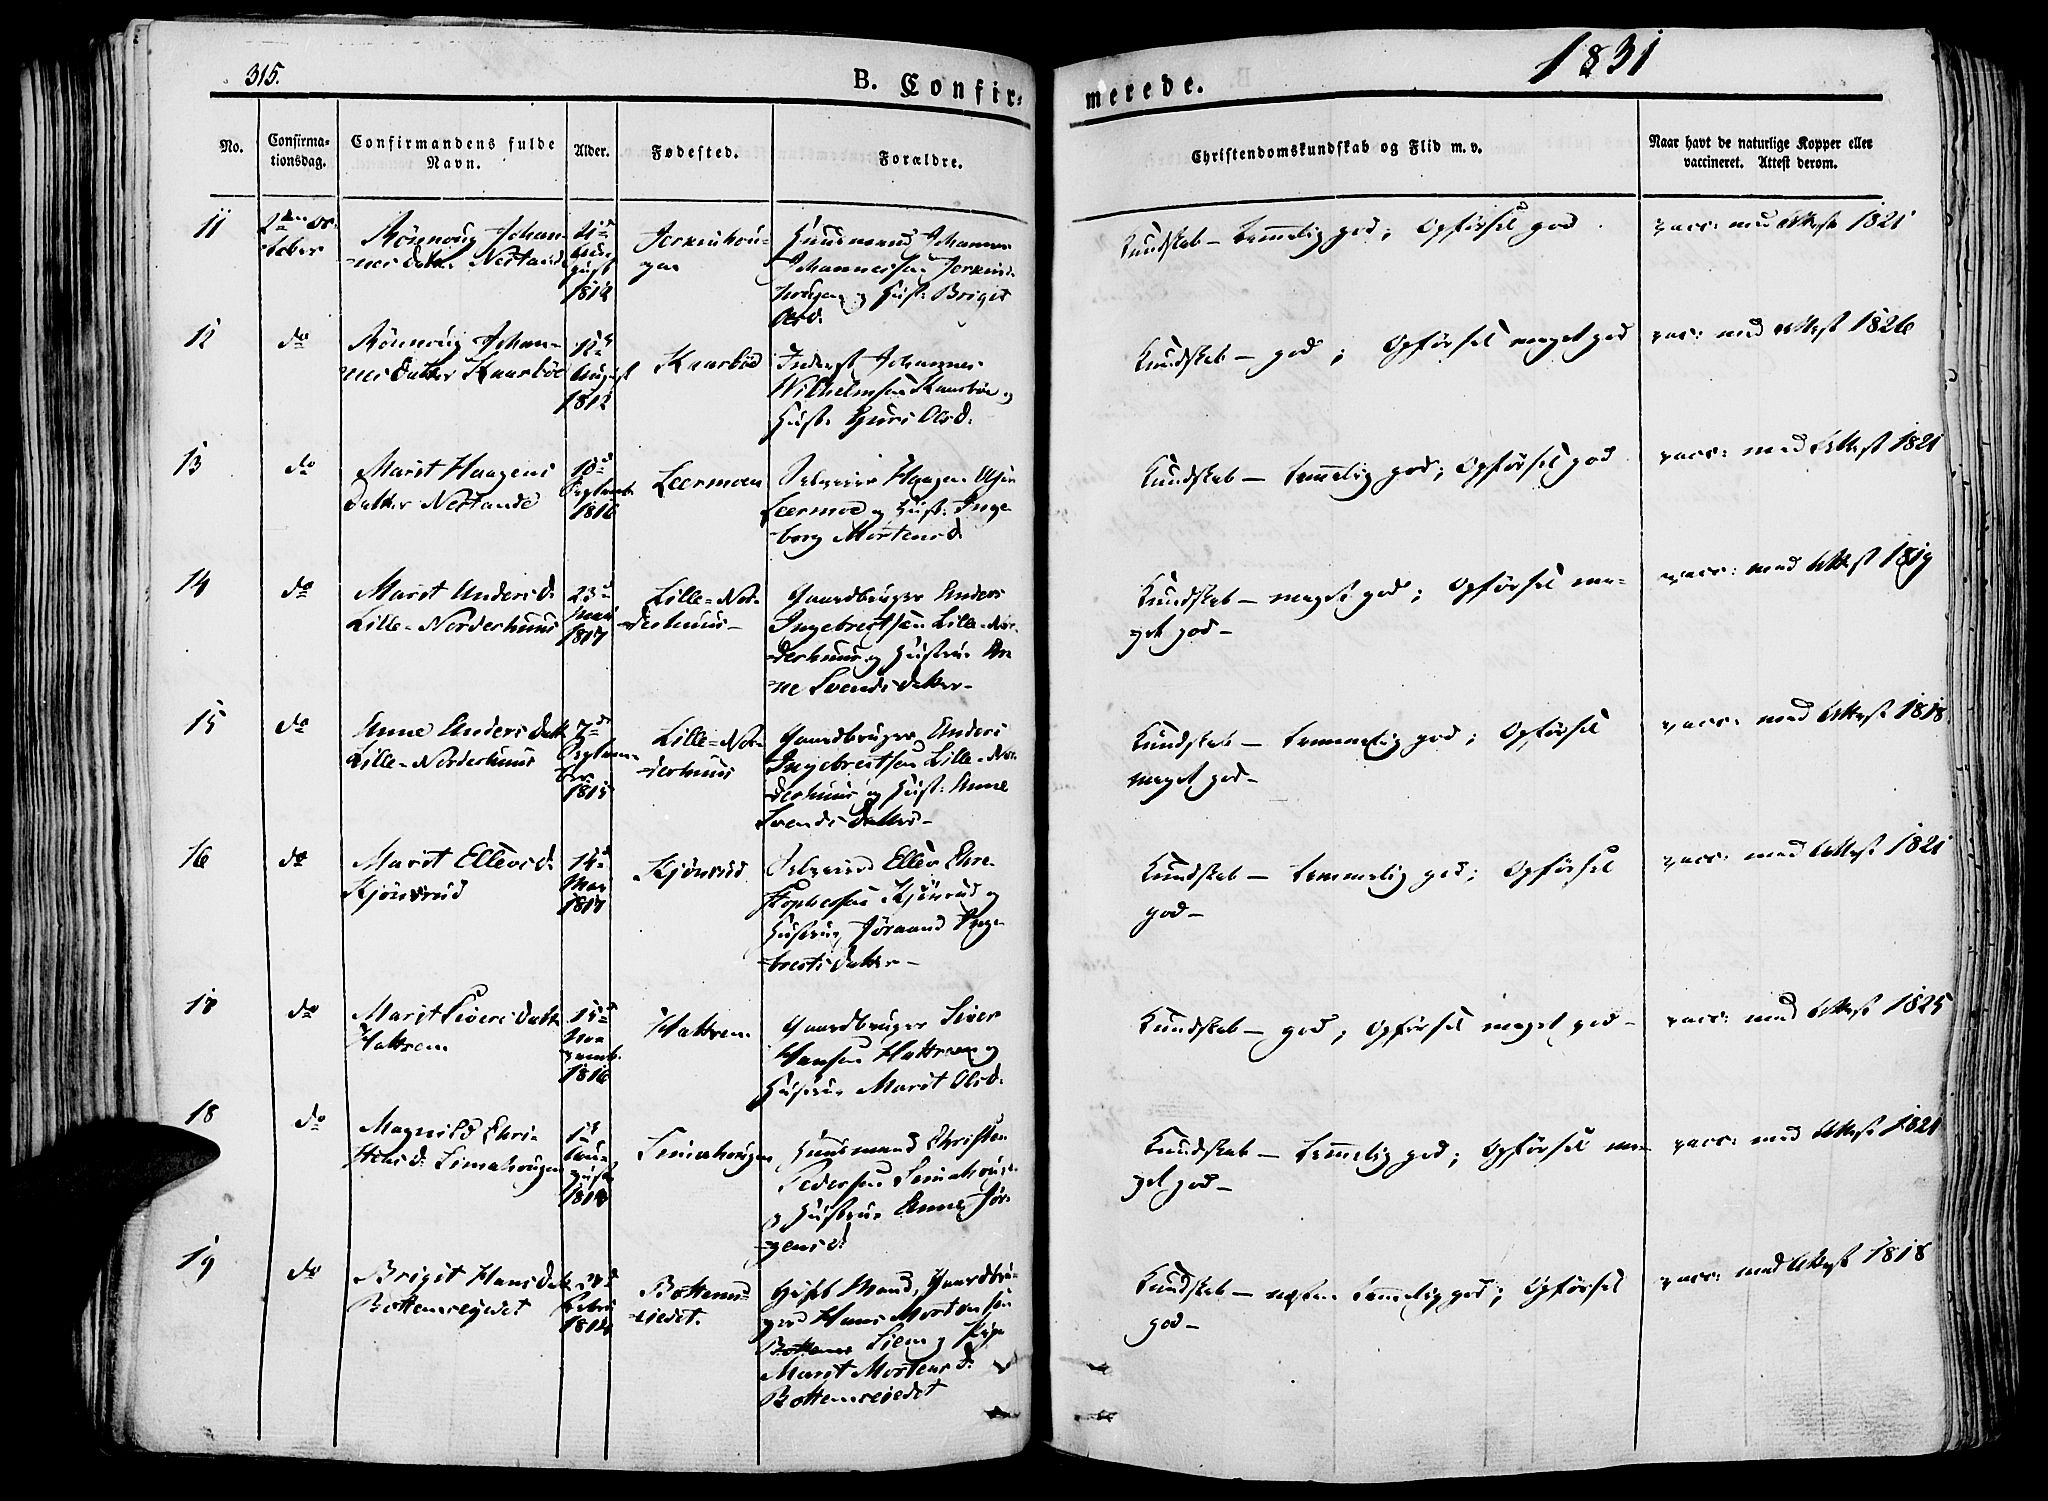 315.
B. Confir-
merede.
1831
No.
Confirma-
tionsdag.
Confirmandens fulde
Navn.
Alder.
Fødested.
Forældre.
Christendomskundskab og Flid m. v.
Naar havt de naturlige Kopper eller
vaccineret. Attest derom.
11
2den Oc-
tober
Rönnoug Johan-
nesdatter Nestande
August
1812
Huusmand Johannes
Johannessen
og Hust: Briget
Olsd.
Kundskab – temmelig god; Opførsel god
vacc: med Attest 1821
12
do
Rönnoug Johan-
nesdatter Kaarböe
12
August
1812
Kaarböe
Inderst Johannes
Wilhelmsen Kaarböe og
Hust. Guri Olsd.
Kundskab – god; Opførsel meget god
vac: med Attest 1826
13
do
Marit Haagens
Datter Nestande
Septemb
1816
Leermoen
Selveier Haagen
Leermoe og Hust: Inge-
borg Mortensd.
Kundskab – temmelig god; Opførsel god
vacc: med Attest 1821
14
do
Marit Andersd.
Lille-Norderhuus
23
Mai
1817
Lille-Nor-
derhuus–
Gaardbruger Anders
Ingebretsen Lille-Nor-
derhuus og Hustrue An-
ne Svendsdatter–
Kundskab – meget god; Opførsel me-
get god–
vacc: med Attest 1819
15
do
Anne Anders Datt
Lille-Norderhuus
7de
Septem-
ber
1815
Lille-Nor-
derhuus
Gaardbruger Anders
Ingebretsen Lille-Nor-
derhuus og Hust: Anne
Svends Datter–
Kundskab – temmelig god; Opførsel
meget god–
vacc: med Attest 1818
16
do
Marit Ellevsd.
Kjönsrud
14
1817
Kjönsrud
Selveier Ellev Chri-
stophersen Kjönsrud og
Hustrue Jöraand Inge-
bretsdatter–
Kundskab – temmelig god; Opførsel
god–
vacc: med Attest 1821
17
do
Marit Sivers Datt
Hattrem
15
No-
vemb.
1816
Hattrem
Gaardbruger Siver
Hansen Hattrem og
Hustrue Marit Olsd.
Kundskab – god; Opførsel meget god–
vacc: med Attest 1825
18
do
Magnild Chri-
stensd. Limahougen
1
Au-
gust
Limahougen
Huusmand Christen
Pedersen
og Hustrue Anne Jör-
gensd.
Kundskab – temmelig god; Opførsel me-
get god–
vacc: med Attest 1821
19
do
Brigit Hans Datt
Bottemseiedet
Febru
Bottems-
eiedet.
Gift Mand, Gaardbru-
ger Hans Mortensen
Liem og Pige
Marit Mortensd.
Bottemseiedet
Kundskab – næsten temmelig god; Opførsel
god–
vacc: med Attest 1818